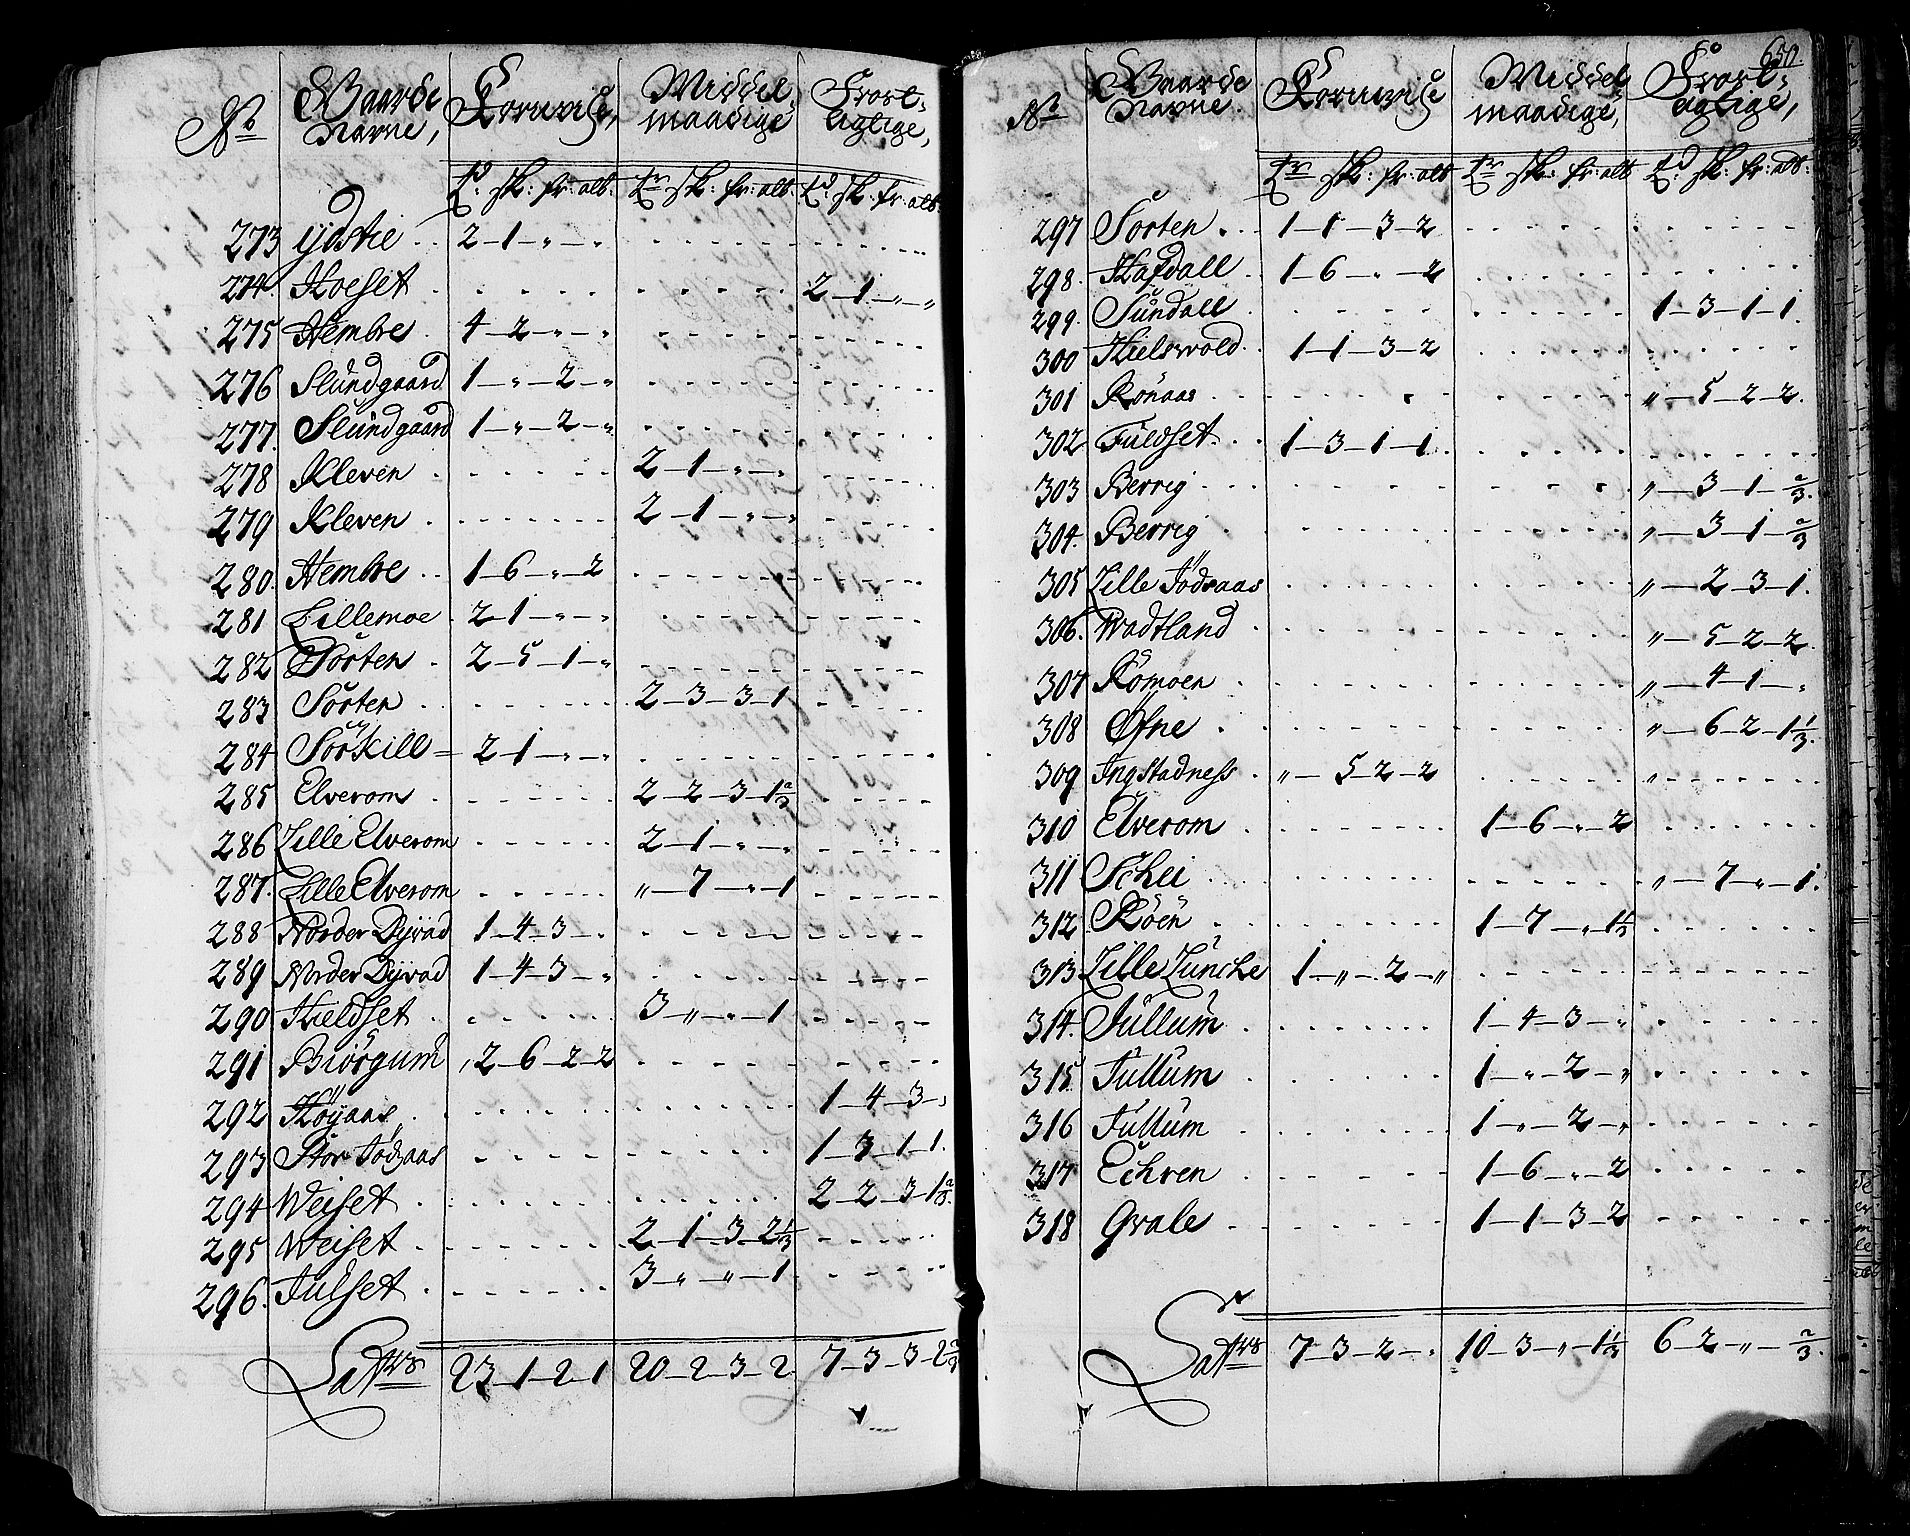 No Gaarde Navne, Kornvise, Middel- maadige Frost- lige,
td: sk: fr: alb: tr sk: fr: alb: td sk: fr: alb:
273 ydstie 2-1-"-"
274. Hoeset 2-1-"-"
275 Hembre 4-2-"-"
276 Slundgaard 1-"-2-"
277. Slundgaard 1-"-2-"
278 Kleven 2-1-"-"
279 Kleven 2-1-"-"
280. Hembre 1-6-"-2
281 Lillemoe 2-1-"-"
282 Sorten 2-5-1-"
283 Sorten 2-3-3-1
284 Sorkill 2-1-"-"
285 Elverom 2-2-3-1 2/3
286 Lille Elverom 2-1-"-"
287. Lille Elverom "-7-"-1
288 Norder Dyvad 1-4-3-"
289 Norder Dyvad 1-4-3-"
290 Kieldset 3-"-"-1
291 Biörgum 2-6-2-2
292 Höyaas 1-4-3-"
293 Stor Födzaas 1-3-1-1.
294 Weiset 2-2-3-1 2/3.
295 Weiset 2-1-3-2 1/3
296. Julset 3-"-"-1
Latus 23-1-2-1 20-2-3-2 7-3-3-2 2/3
650.
No Gaarde Navne. Kornvise Middel maadige, Frost- lige,
tr sk: fr: alb tr sk: fr: alb td sk: fr: alb:
297 Sorten 1-1-3-2
298. Hafdall 1-6-"-2
299. Sundall 1-3-1-1.
300 Kielswold 1-1-3-2
301 Rönaas "-5-2-2.
302 Fuldset 1-3-1-1.
303 Berrig "-3-1-2/3.
304. Berrig "-3-1-2/3
305 Lille Födsaas "-2-3-1.
306. Wadtland "-5-2-2.
307 Römoen "-4-1-"
308 Öfne "-6-2-1 1/3.
309 Ingstadness "-5-2-2 "
310 Elverom 1-6-"-2
311 Schei "-7-"-1.
312 Röen 1-7-"-1 1/3
313 Lille Luncke 1-"-2-"
314. Fullum 1-4-3-"
315 Fullum 1-"-2-"
316 Fullum 1-"-2-"
317 Echren 1-6-"-2
318 Grale 1-1-3-2
Latus 7-3-2-" 10-3-"-1 1/3 6-2-"-2/3.